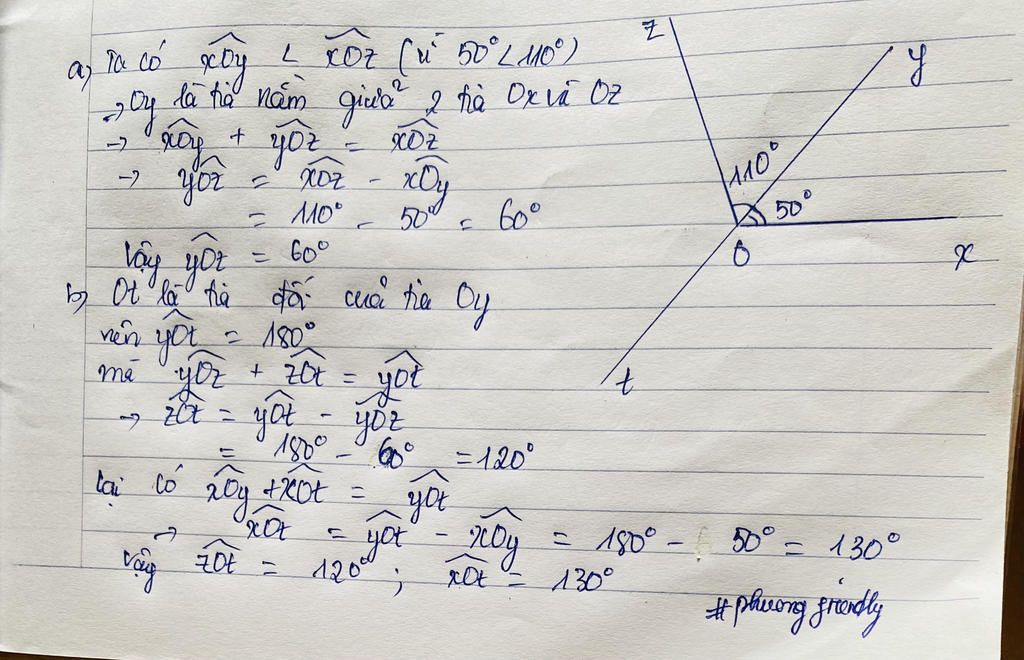 a) Ta có xOy < xOz (vì 50° < 110°)
→ Oy là tia nằm giữa 2 tia Ox và Oz
→ xOy + yOz = xOz
→ yOz = xOz - xOy
= 110° - 50° = 60°
Vậy yOz = 60°
b) Ot là tia đối của tia Oy
nên yOt = 180°
mà yOz + zOt = yOt
→ zOt = yOt - yOz
= 180° - 60° = 120°
Lại có xOy + xOt = yOt
→ xOt = yOt - xOy = 180° - 50° = 130°
Vậy zOt = 120° ; xOt = 130°
#phuong friendly
z
y
110°
50°
O
x
t